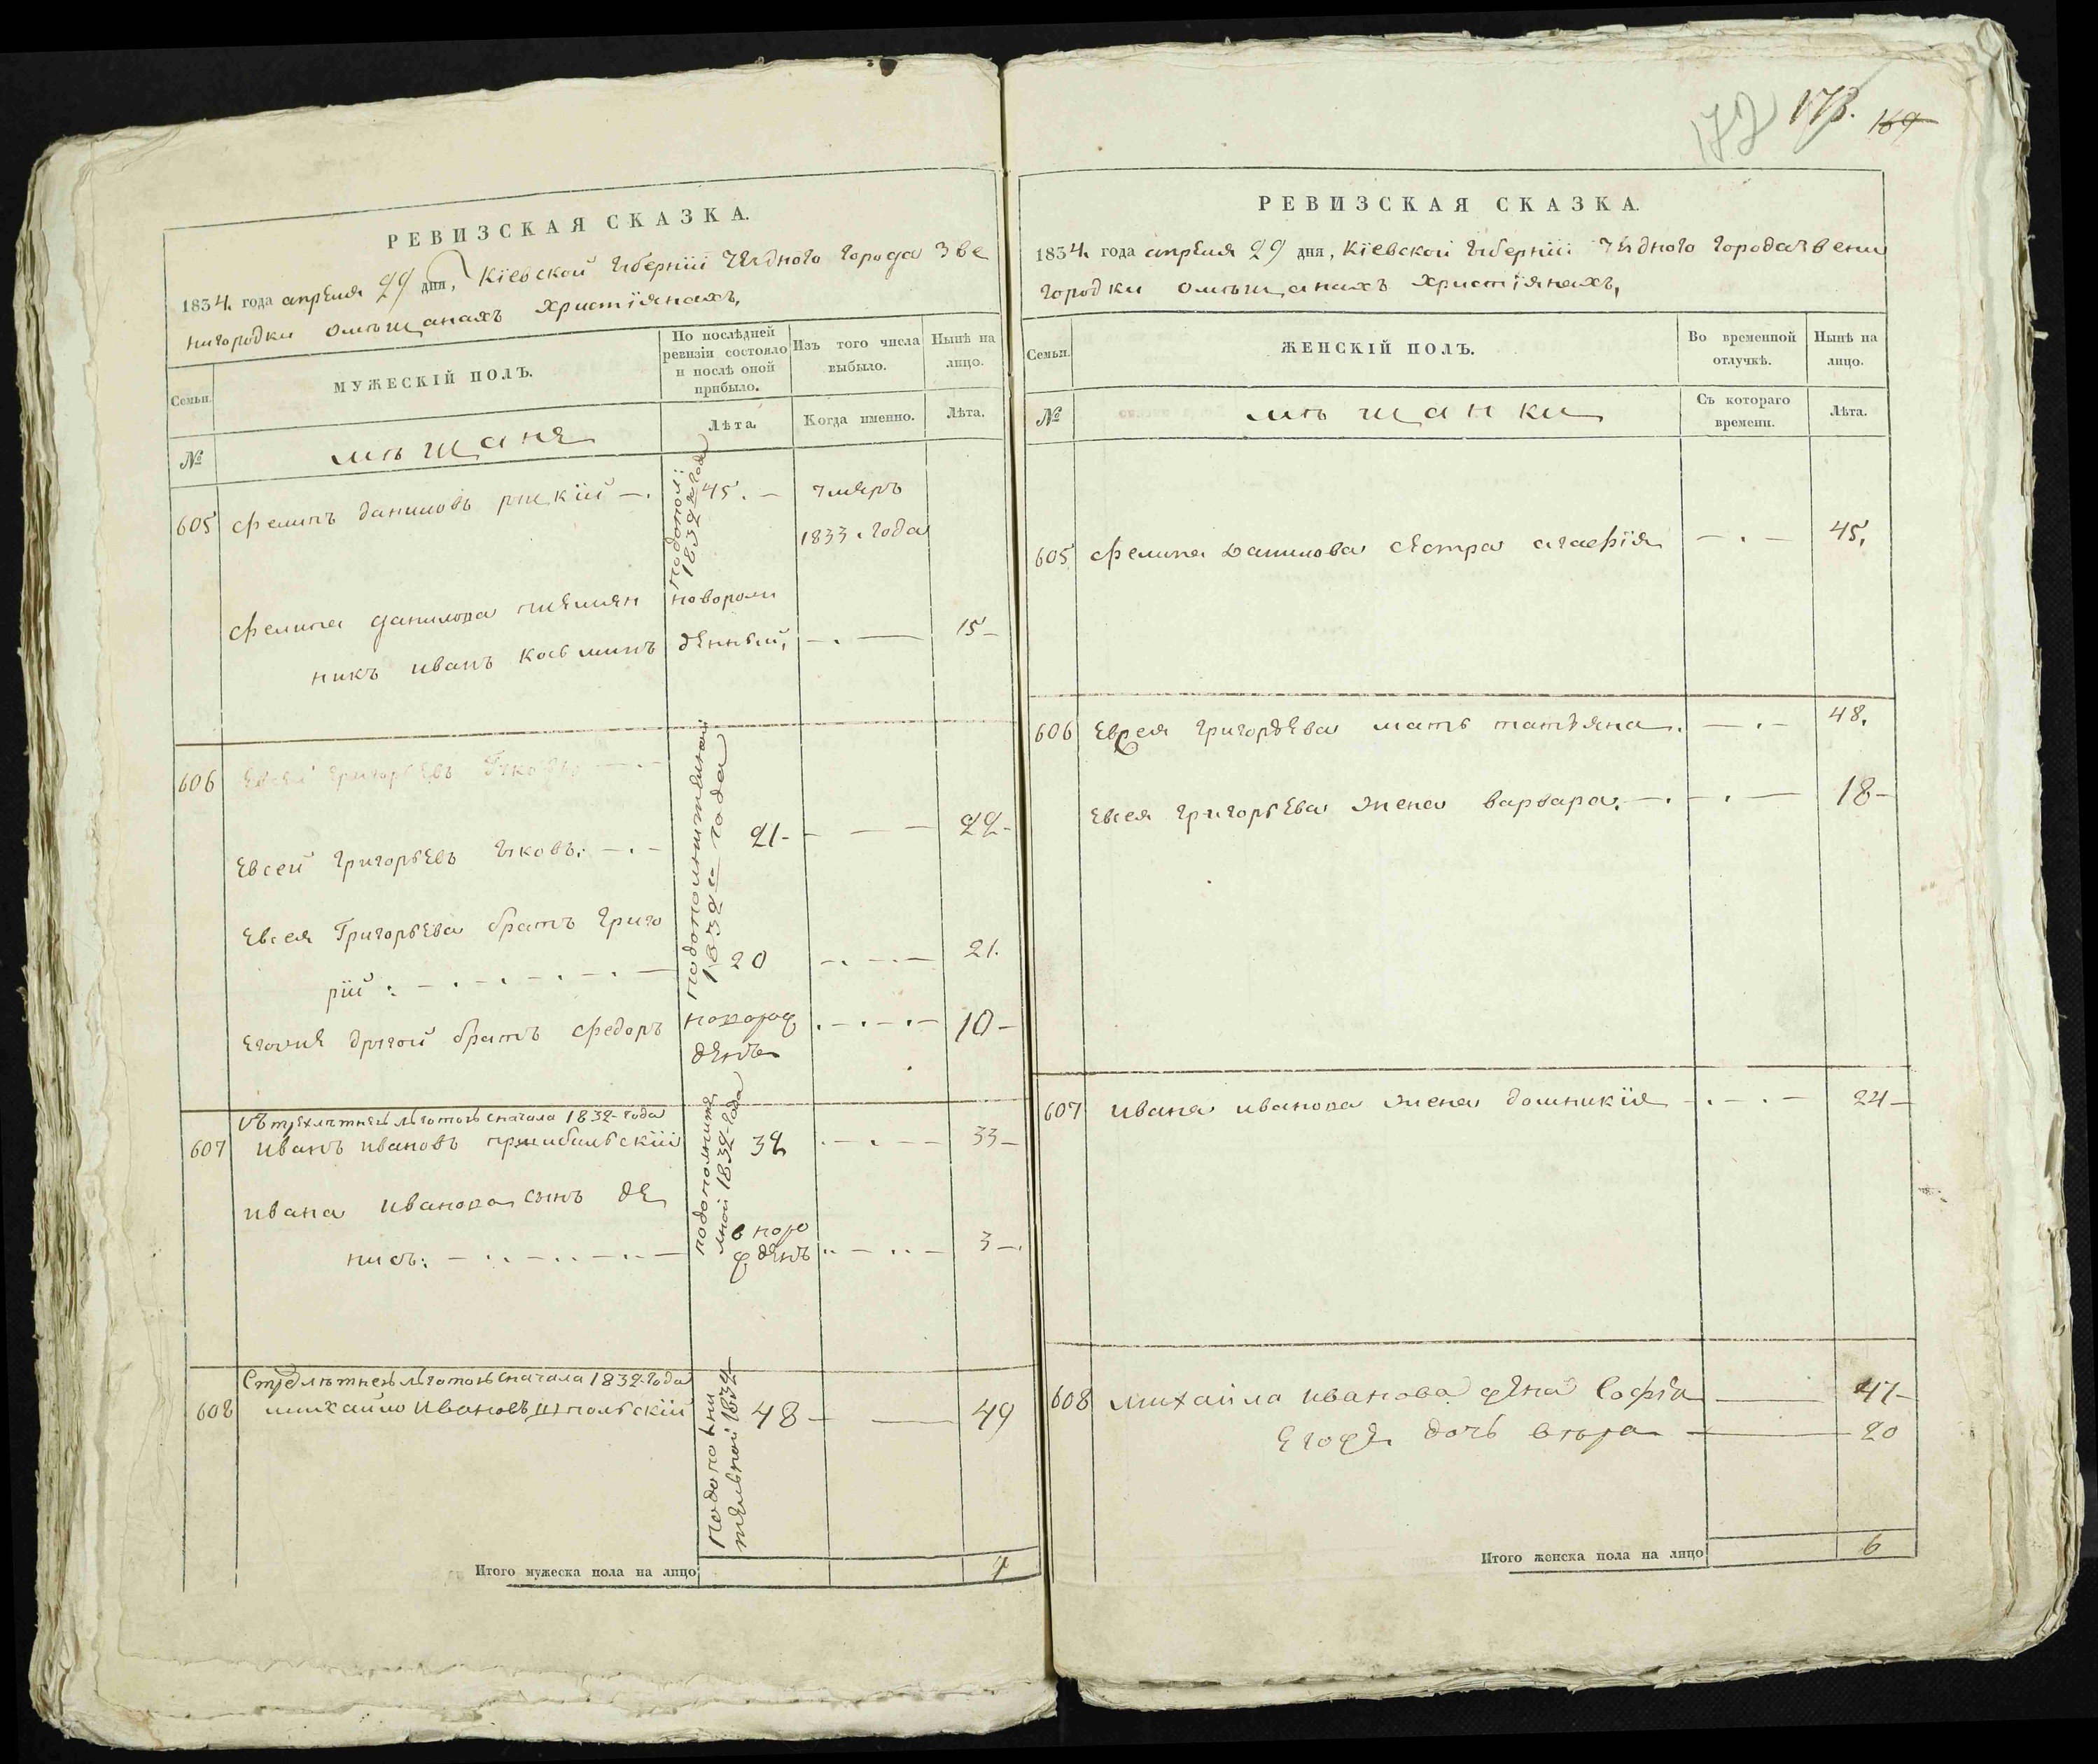 РЕВИЗСКАЯ СКАЗКА.
1834. года апреля 29 дня, Кіевской губерніи уезднаго города Зве
нигородки омѣщанахъ христіянахъ,
Семьи.
МУЖЕСКІЙ ПОЛЪ.
По послѣдней ревизіи состояло и послѣ оной прибыло.
Изъ того числа выбыло.
Нынѣ на лицо.
№
мѣщане
Лѣта.
Когда именно.
Лѣта.
605 Филипъ даниловъ —. 45. — умеръ
1833. года
1832 года
Филипа данилова племян новорож
никъ иванъ козминъ денный, —.— 15—
606 Евсей григорьевъ
Евсей григорьевъ — . — 21- — — — 22-
1832 года
Евсея Григорьева братъ григо
рій: — . — . — . — . — 20 —.—.— 21.
Егоже другой братъ Федоръ новорож .—.—.— 10—
денъ
стрехлѣтней льготою сначала 1832 года
607 иванъ ивановъ 32 .—.— 33—
ивана иванова сынъ де
нисъ: — . . — . . — . . — в норо
жденъ ..—..— 3—.
1832 года
стрехлѣтнею льготою сначала 1832 года
608 михайло ивановъ 48— — 49
Итого мужеска пола на лицо 7
172 173. 169
РЕВИЗСКАЯ СКАЗКА.
1834. года апреля 29 дня, Кіевской губерніи уезднаго города звени
городки омѣщанахъ христіянахъ,
Семьи.
ЖЕНСКІЙ ПОЛЪ.
Во временной отлучкѣ.
Нынѣ на лицо.
№
мѣщанки
Съ котораго времени.
Лѣта.
605 Филипа Данилова сестра агафія — . — 45.
606 Евсея григорьева мать татьяна. — . — 48.
Евсея григорьева жена варвара. —. — . — 18—
607 ивана иванова жена домникія — . — . — 24—
608 михайла иванова жена Софія — 47—
Егоже дочь вѣра — 20
Итого женска пола на лицо 6